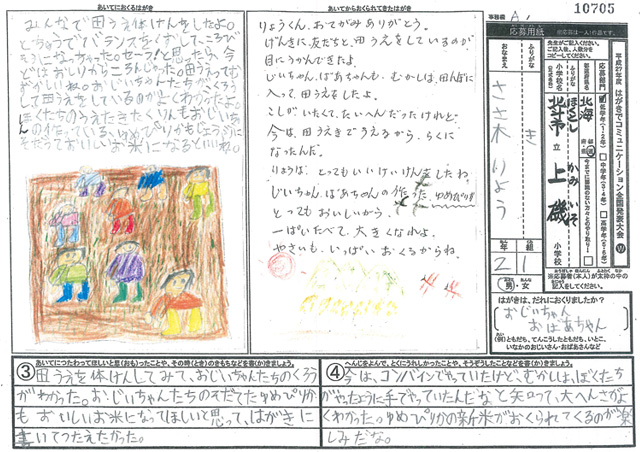 あいてにおくるはがき
みんなで田うえ体けんをしたよ。
とちゅうでバランスをくずして、ころび
そうになっちゃった。セーフ!と思ったら、今
どはおしりからころんじゃった。田うえってむ
ずかしいね。おじいちゃんたちがくろう
して田うえをしているのがよくわかったよ。
ぼくたちのうえたきたくりんもおじいちゃ
んの作っている、ゆめぴりかもじょうぶに
そだっておいしいお米になるといいね。
あいてからおくられてきたはがき
りょうくん、おてがみありがとう。
げんきに友だちと、田うえをしているのが
目にうかんできたよ。
じいちゃん、ばあちゃんも、むかしは、田んぼに
入って、田うえをしたよ。
こしがいたくて、たいへんだったけれど、
今は、田うえきでうえるから、らくに
なったんだ。
りょうは、とってもいいけいけんをしたね
じいちゃん、ばあちゃんの作った、ゆめぴりか
とってもおいしいから、
一ぱいたべて、大きくなれよ。
やさいも、いっぱいおくるからね。
事務局 A
10705
応募用紙
平成27年度 はがきでコミュニケーション全国発表大会
先生がご記入ください。
応募部門
低学年(1・2年)
中学年(3・4年)
高学年(5・6年)
都道府県名
北海
小学校名
ほくとし かみいそ
北斗市 立 上磯 小学校
ふりがな
おなまえ
ささ木りょう
学年 2
組 1
男・女
※応募者(本人)が太枠の中の記入をしてください。
はがきは、だれにおくりましたか?
おじいちゃん
おばあちゃん
(例)ともだち、てんこうしたともだち、いとこ、
いなかのおじいさん・おばあさんなど
③ あいてにつたわってほしいと思(おも)ったことや、その時(とき)のきもちなどを書(か)きましょう。
田うえを体けんしてみて、おじいちゃんたちのくろう
がわかった。おじいちゃんたちのそだてたゆめぴりか
もおいしいお米になってほしいと思って、はがきに
書いてつたえたかった。
④ へんじをよんで、とくにうれしかったことや、そうぞうしたことなどを書(か)きましょう。
今は、コンバインでやっていたけど、むかしは、ぼくたち
がやったように手でやっていたんだなと知って、大へんさがよ
くわかった。ゆめぴりかの新米がおくられてくるのが楽
しみだな。